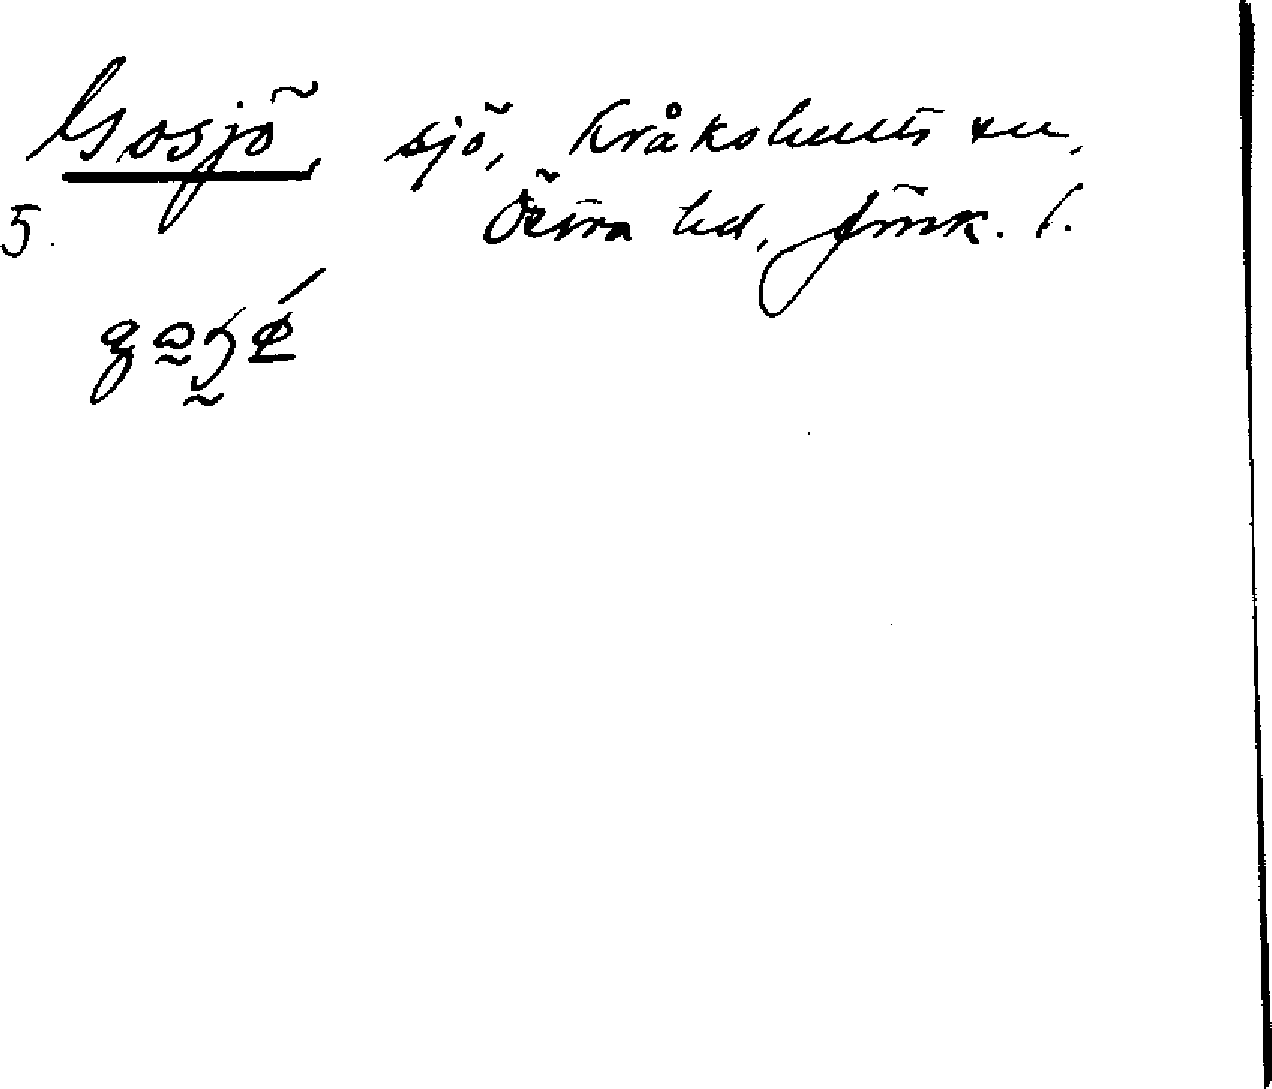 Gosjö, sjö, Kråkshults sn,
5. Östra hd, Jönk. l.